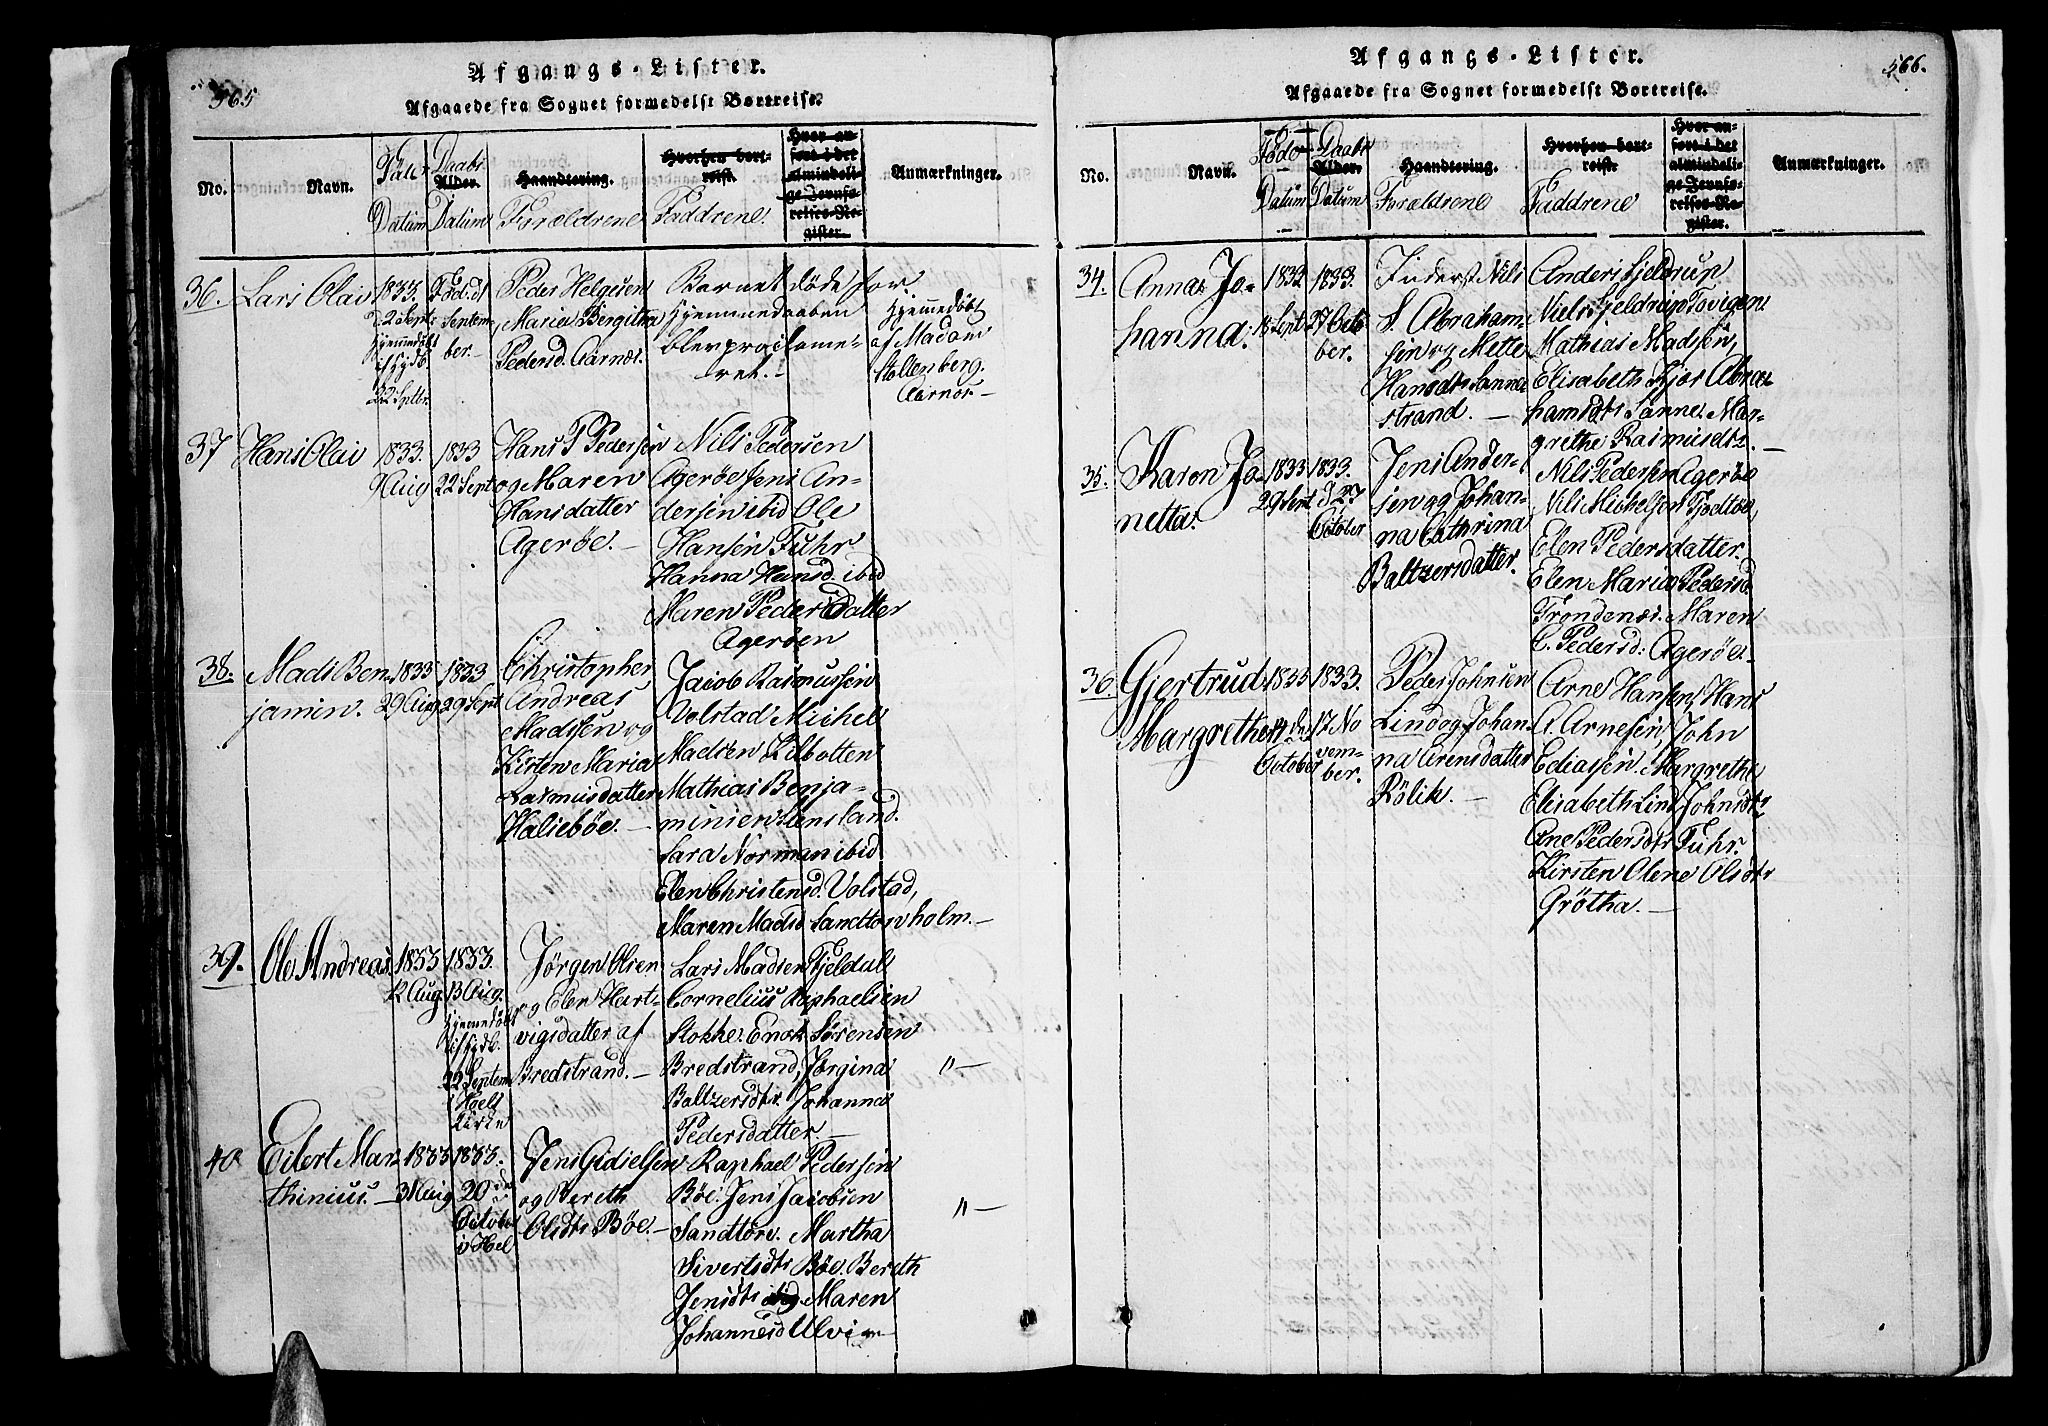 565
Afgangs-Lister.
Afgaaede fra Sognet formedelst Bortreise.
No.
Navn.
Föder
Datum
Daabs
Alder.
Datum
Haandtering.
Forældrene
Hvorhen bort-
reist.
Faddrene.
Hvor an-
fört i det
almindeli-
ge Jevnfö-
relses-Re-
gister.
Anmærkninger.
36.
Lars Olai
1833.
22 Septr
hjemmedöbt
22 Septbr.
Födidt
Septem
ber.
Peder Helgesen
Maria Bergitha
Pedersd. Aarnæs.
Barnet döde for
Hjemmedaaben
blev proclame-
ret.
Hjemmedöbt
af Madam
Stoltenberg.
Aarnæs.
37
Hans Olai
1833.
9 Aug
1833
22 Sept
Hans P Pedersen
og Maren
Hansdatter
Ageröe.
Nils Pedersen
Ageröe Jens An-
dersen ibid Ole
Hansen Fuhr
Hanna Hansd. ibid
Maren Pedersdatter
Ageröen
38.
Mads Ben-
jamin.
1833
29 Aug
1833
29 Sept
Christopher
Andreas
Madssen og
Kirsten Maria
Rasmusdatter
Haliebóe.
Jacob Rasmussen
Volstad Michel
Madsen Kilbotten
Mathias Benja-
minsen Stensland.
Sara Norman ibid
Elen Christensd. Volstad,
Maren Madsd Sandtorvholm.
39.
Ole Andreas
1833
12 Aug.
1833.
13 Aug.
hjemmedöbt
22 Septem
i Hols
Kirke
Jörgen Olsen
og Elen Hart-
vigsdatter af
Bredstrand.
Lars Madsen Fjeldal
Cornelius Raphaelsen
Stokke. Enok Sörensen
Bredstrand, Jörgina
Baltzersdtr. Johanna
Pedersdatter.
"
40
Eilert Mar-
thinius.
1833
31 Aug
1833.
20 de
October
i Hol
Jens Gidielsen
og Bereth
Olsdtr Böe.
Raphael Pedersen
Böe. Jens Jacobsen
Sandtorv. Martha
Sivertsdtr Böe. Bereth
Jensdtr ibid Maren
Johannesd Ulvi
"
566.
Afgangs-Lister.
Afgaaede fra Sognet formedelst Bortreise.
No.
Navn.
Födo
Datum
Daabs
Alder.
Datum
Haandtering.
Forældrene
Hvorhen bort-
reist.
Faddrene
Hvor an-
fört i det
almindeli-
ge Jevnfö-
relses-Re-
gister.
Anmærkninger.
34.
Anna Jo-
hanna.
1833
18 Sept
1833.
27 Octo
ber.
Inderst Nils
S. Abraham-
sen og Mette
Hansdtr Sanna
strand.
Anders Fjeldrup
Niels Fjeldrup Tovigen
Mathias Madsen,
Elisabeth Fjær Abra-
hamsdtr Sanne. Mar-
grethe Rasmusdtr.
35.
Karen Jo-
netta.
1833
29 Sept
1833.
D 27
October
Jens Ander-
sen og Johan-
na Cathrina
Baltzersdatter.
Nils Pedersen Ageröe
Nils Michelsen Fjodtöe,
Elen Pedersdatter.
Elen Maria Pedersd.
Trondenæs. Maren
C. Pedersd: Ageröe
36.
Gjertrud
Margrethe
1833
14 de
October
1833.
17 No
vem-
ber.
Peder Johnsen
Lind og Johan-
na Arensdatter
Rölik.
Arne Hansen, Hans
A. Arnesen, John
Ediassen. Margrethe
Elisabeth Lind Johnsdtr
Ane Pedersdtr Fuhr.
Kirsten Olene Olsdtr
Grötha.